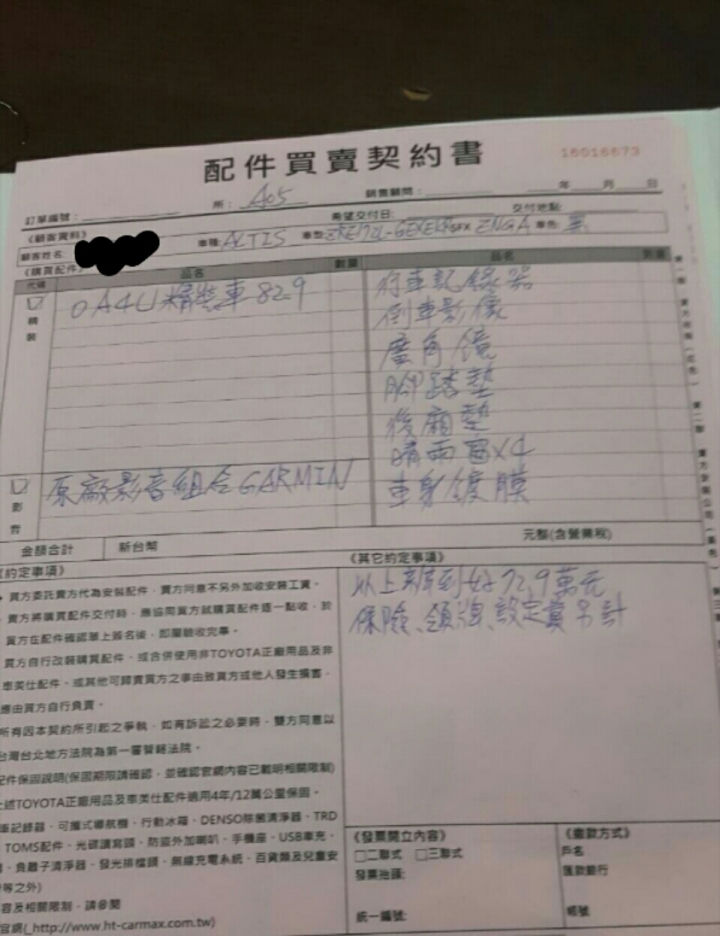 配件買賣契約書
16016673
訂單編號：
所：A05
銷售顧問：
年 月 日
《顧客資料》
希望交付日:
交付地點:
顧客姓名:
車種:ALTIS
車型:
車色:黑
《購買配件》
代碼 品名 數量 品名 數量
精裝
OA4U精裝車82.9
行車記錄器
倒車影像
廣角鏡
腳踏墊
後廂墊
晴雨窗X4
車身鍍膜
影音
原廠影音組合GARMIN
金額合計 新台幣 元整(含營業稅)
《約定事項》
賣方委託賣方代為安裝配件，賣方同意不另外加收安裝工資。
賣方將購買配件交付時，應協同買方就購買配件逐一點收，於
買方在配件確認單上簽名後，即屬驗收完畢。
買方自行改裝購買配件，或合併使用非TOYOTA正廠用品及非
車美仕配件，或其他可歸責買方之事由致買方或他人發生損害，
應由買方自行負責。
所有因本契約所引起之爭執，如有訴訟之必要時，雙方同意以
台灣台北地方法院為第一審管轄法院。
配件保固說明(保固期限請確認，並確認官網內容已載明相關限制)
上述TOYOTA正廠用品及車美仕配件適用4年/12萬公里保固。
車記錄器、可攜式導航機、行動冰箱、DENSO除菌清淨器、TRD
TOMS配件、光碟讀寫頭、防盜外加喇叭、手機座、USB車充、
負離子清淨器、發光排檔頭、無線充電系統、百貨類及兒童安
等之外)
容及相關限制，請參閱
官網(_http://www.ht-carmax.com.tw)
《其它約定事項》
以上辦到好72.9萬元
保險、領牌、設定費另計
《發票開立內容》
□二聯式 □三聯式
發票抬頭:
統一編號:
《繳款方式》
戶名
匯款銀行
帳號